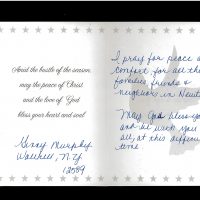 Amid the bustle of the season,
may the peace of Christ
and the love of God
bless your heart and soul.
Ginny Murphy
N.Y.
12589
I pray for peace &
comfort for all the
families, friends &
neighbors in Newt
May God bless yo
and be with you
all, at this difficu
time